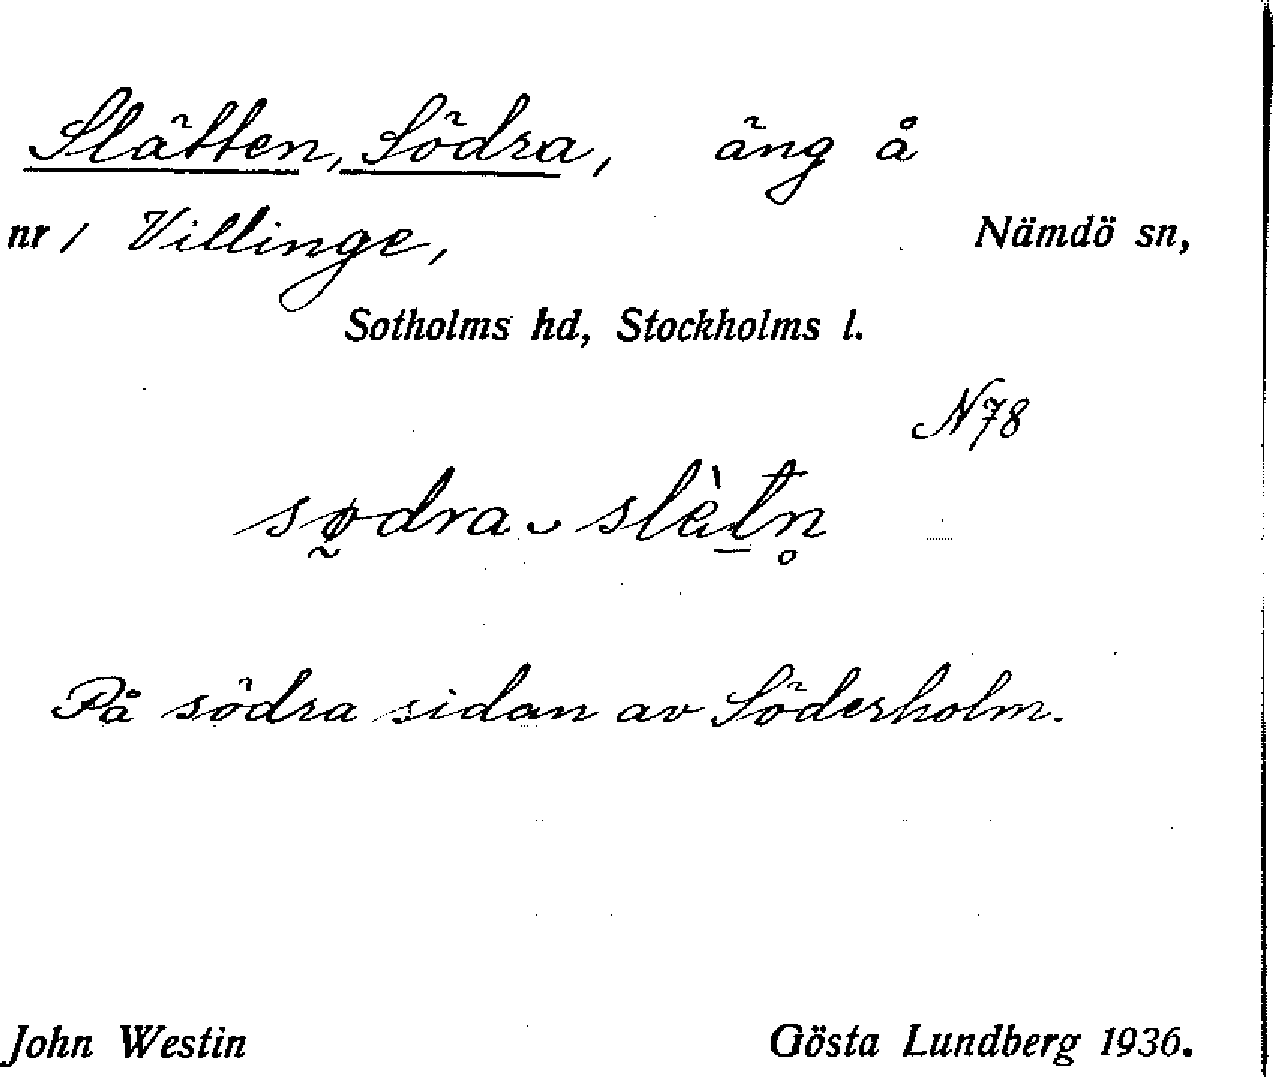 Slätten, Södra, äng å
nr 1 Villinge, Nämdö sn,
Sotholms hd, Stockholms l.
N78
sø̰dra ‿ slèt̲n̥
På södra sidan av Söderholm.
John Westin Gösta Lundberg 1936.